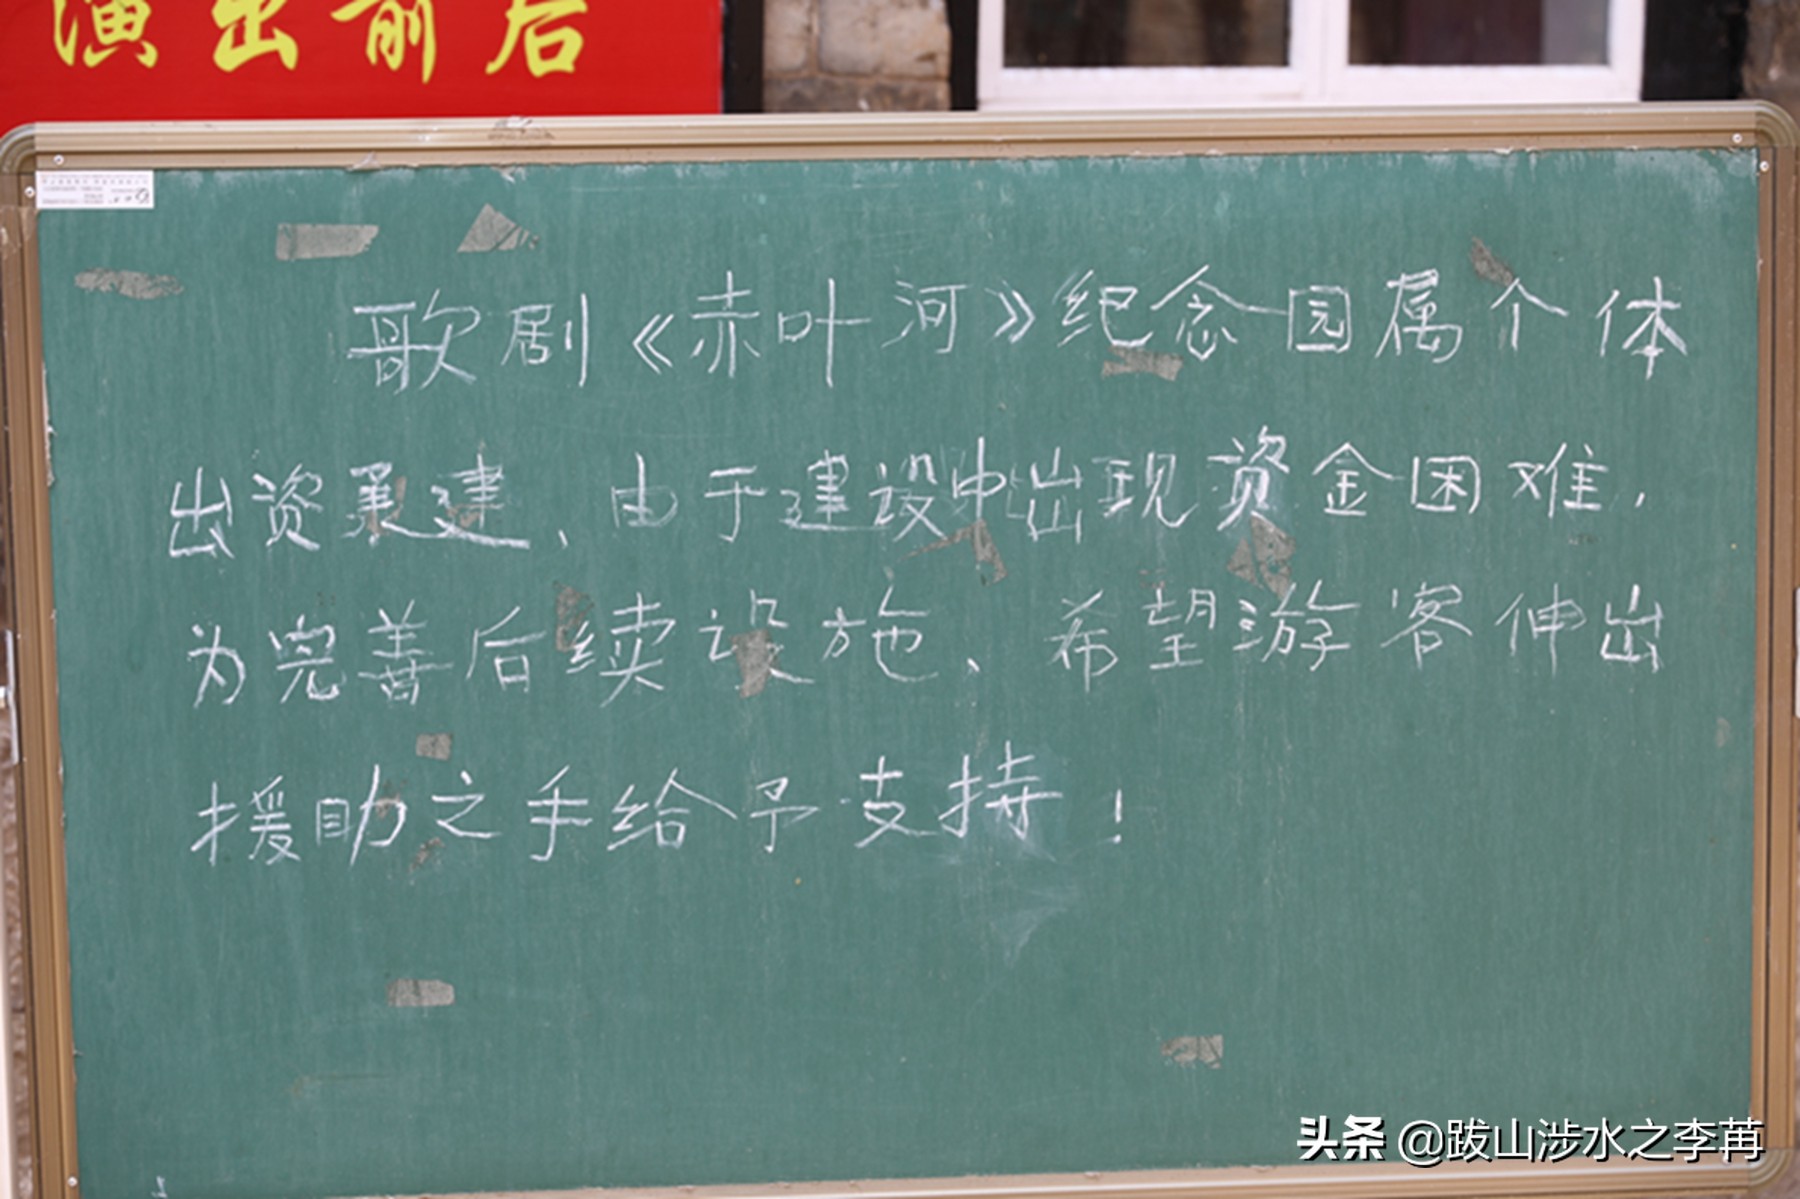 演出前后
歌剧《赤叶河》纪念园属个体
出资承建、由于建设中出现资金困难，
为完善后续设施、希望游客伸出
援助之手给予支持！
头条 @跋山涉水之李苒